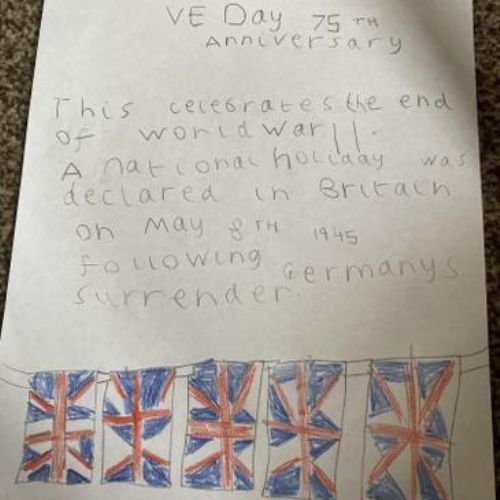 VE Day 75TH
Anniversary
This celebrates the end
of world war II.
A national holiday was
declared in Britain
on May 8TH 1945
following Germanys
surrender.